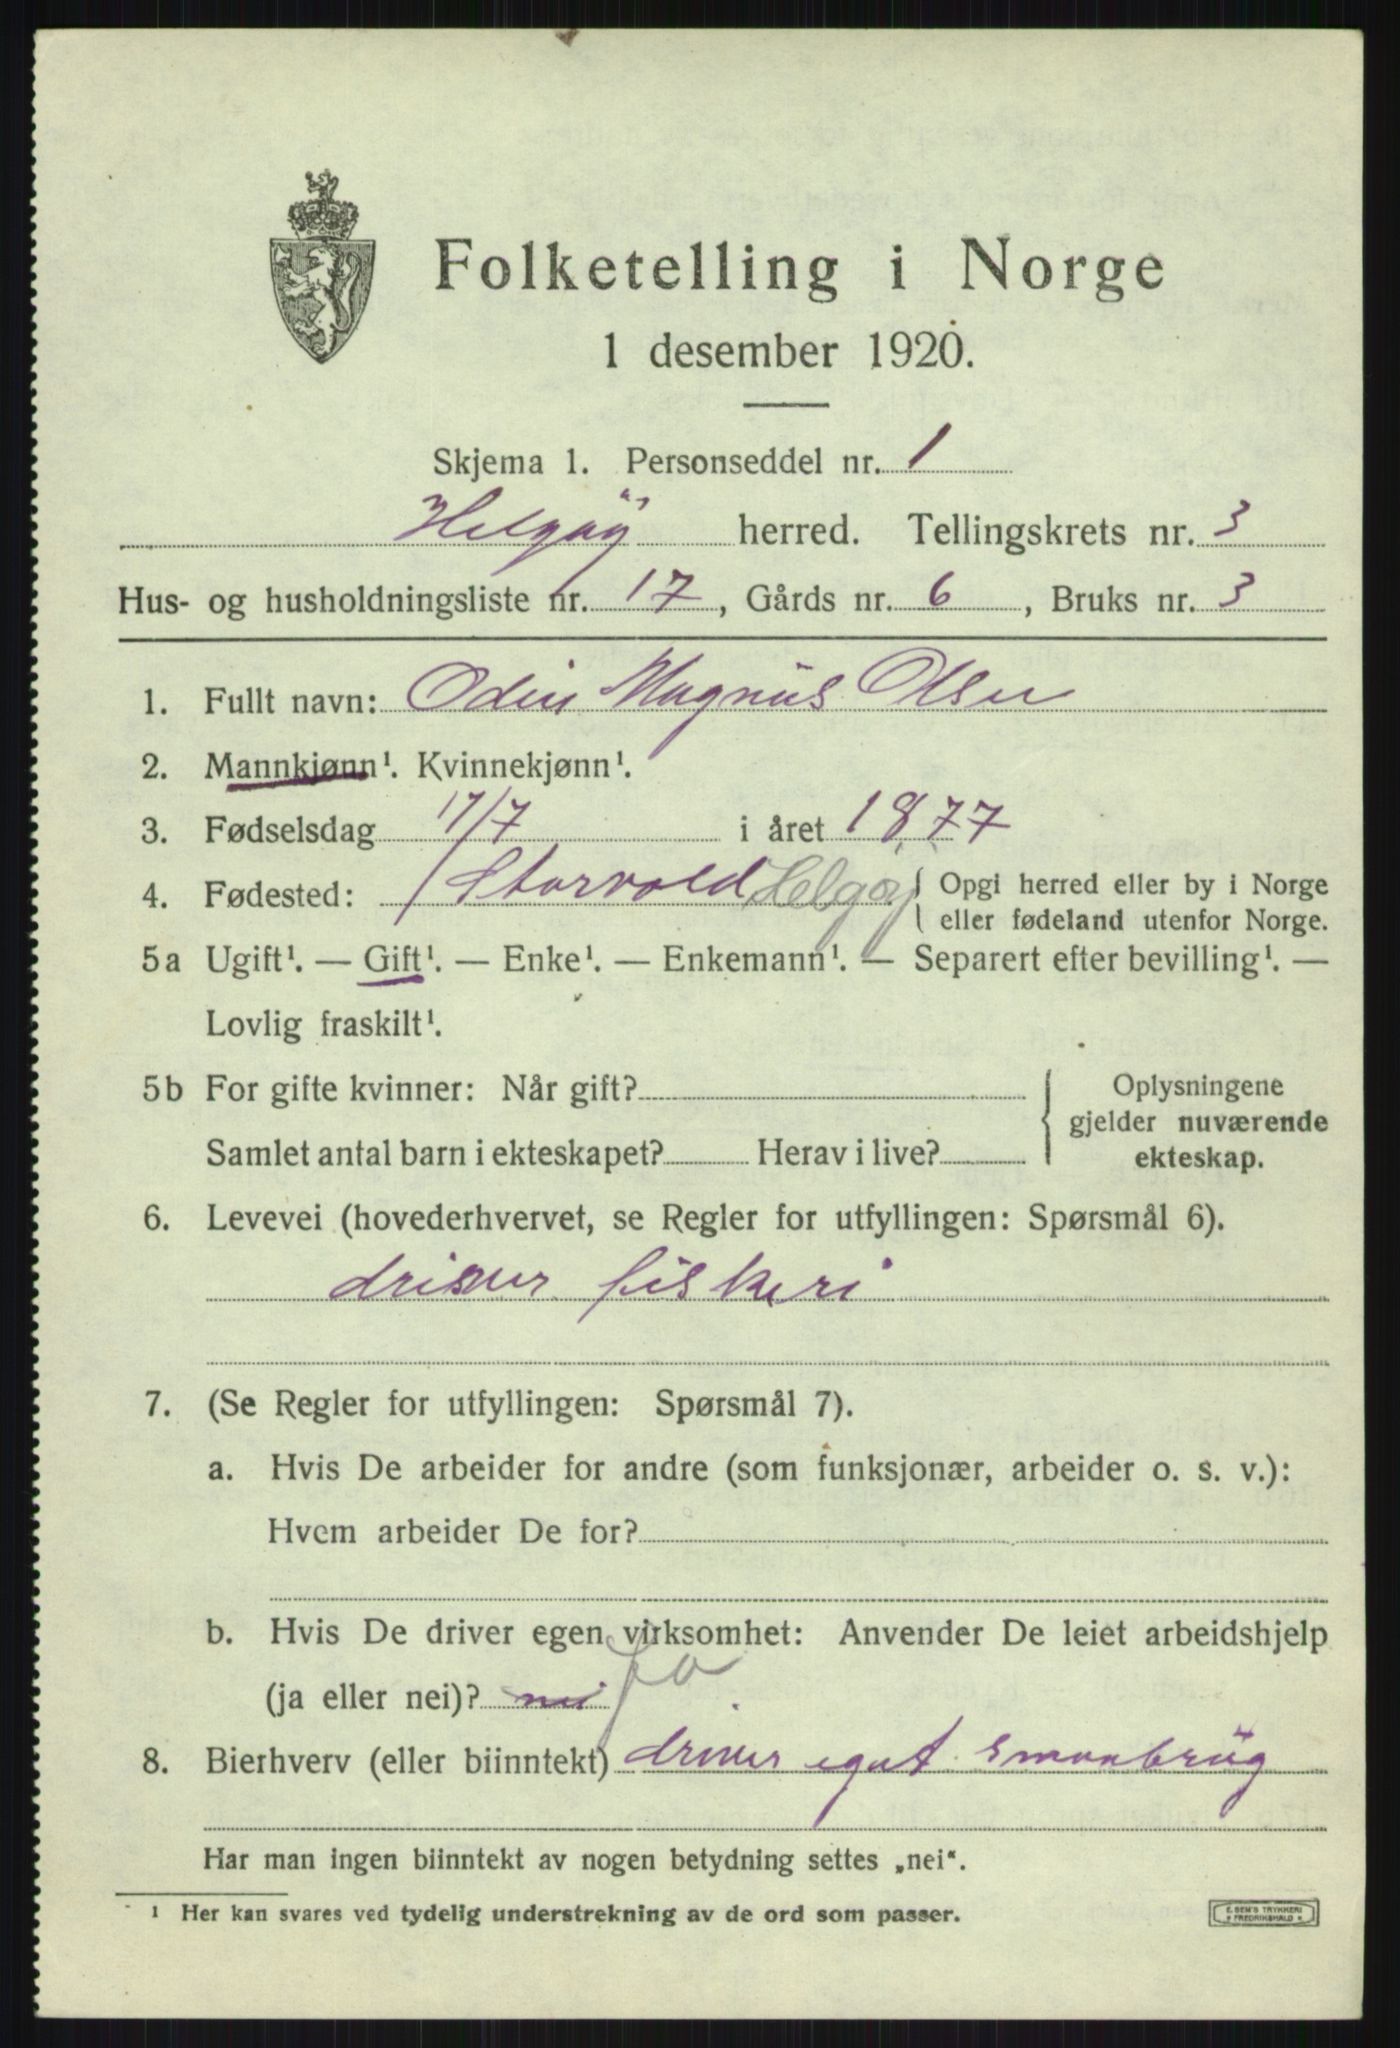 Folketelling i Norge
1 desember 1920.
Skjema 1. Personseddel nr. 1
Helgøy herred. Tellingskrets nr. 3
Hus- og husholdningsliste nr. 17, Gårds nr. 6, Bruks nr. 3
1. Fullt navn: Odin Magnus Olsen
2. Mannkjønn¹. Kvinnekjønn¹.
3. Fødselsdag 17/7 i året 1877
4. Fødested: Storvold Helgøy { Opgi herred eller by i Norge
eller fødeland utenfor Norge.
5a Ugift¹. — Gift¹. — Enke¹. — Enkemann¹. — Separert efter bevilling¹. —
Lovlig fraskilt¹.
5b For gifte kvinner: Når gift?
Samlet antal barn i ekteskapet? Herav i live?
{ Oplysningene
gjelder nuværende
ekteskap.
6. Levevei (hovederhvervet, se Regler for utfyllingen: Spørsmål 6).
driver fiskeri
7. (Se Regler for utfyllingen: Spørsmål 7).
a. Hvis De arbeider for andre (som funksjonær, arbeider o. s. v.):
Hvem arbeider De for?
b. Hvis De driver egen virksomhet: Anvender De leiet arbeidshjelp
(ja eller nei)? nei Ja
8. Bierhverv (eller biinntekt) driver eget smaabrug
Har man ingen biinntekt av nogen betydning settes „nei“.
¹ Her kan svares ved tydelig understrekning av de ord som passer.
E. SEM'S TRYKKERI
* FREDRIKSHALD *